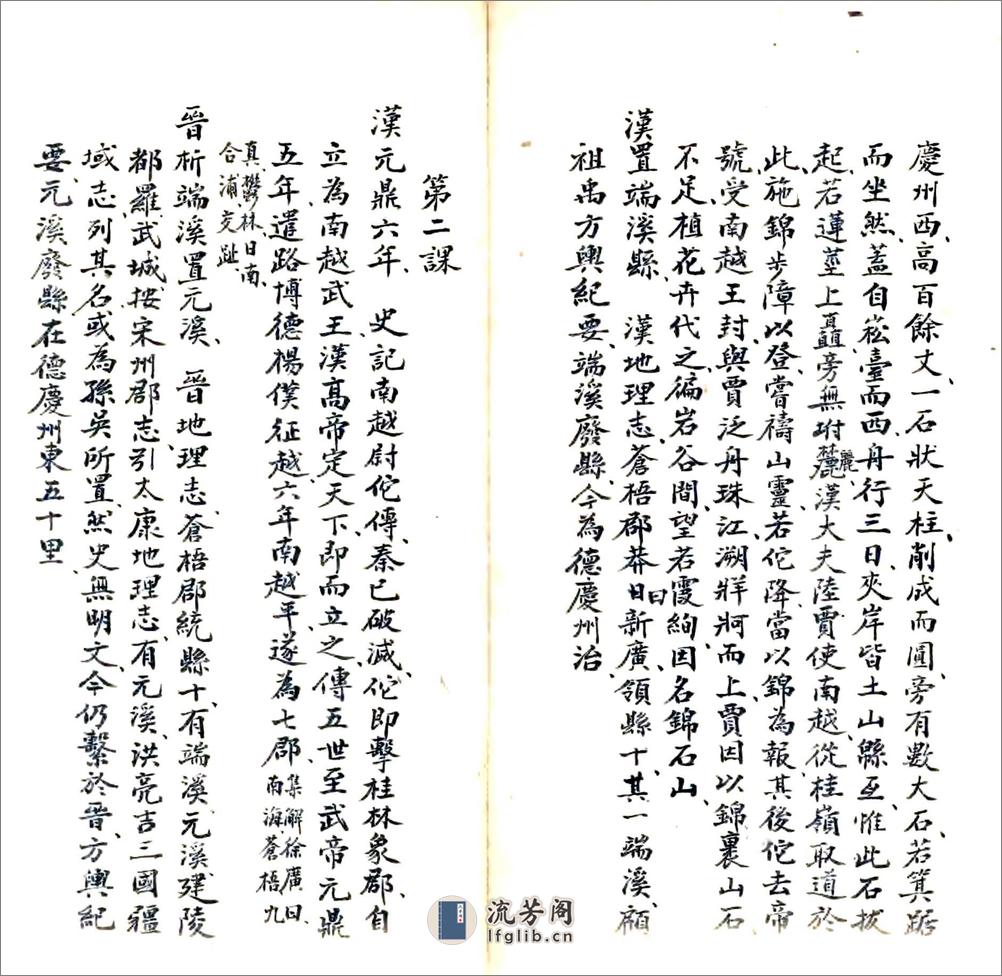 慶州西、高百餘丈、一石狀天柱、削成而圓、旁有數大石、若箕踞
而坐然、蓋自崧臺而西、舟行三日、夾岸皆土山緜亙、惟此石拔
起、若蓮莖上矗、旁無坿麓麗、漢大夫陸賈使南越、從桂嶺取道於
此、施錦步障以登、嘗禱山靈、若佗降、當以錦為報、其後佗去帝
號、受南越王封、與賈泛舟珠江、溯牂牁而上、賈因以錦裹山石、
不足、植花卉代之、徧岩谷間、望若霞絢、因名錦石山、
漢置端溪縣、 漢地理志、蒼梧郡、莽日曰新廣、領縣十、其一端溪、顧
祖禹方輿紀要、端溪廢縣、今為德慶州治、
第二課
漢元鼎六年、 史記南越尉佗傳、秦已破滅、佗即擊桂林象郡、自
立為南越武王、漢高帝定天下、即而立之、傳五世、至武帝元鼎
五年、遣路博德楊僕征越、六年、南越平、遂為七郡、集解徐廣曰、南海蒼梧九
真鬱林日南、合浦交趾、
晉析端溪置元溪、 晉地理志、蒼梧郡、統縣十、有端溪、元溪、建陵
都羅、武城、按宋州郡志、引太康地理志、有元溪、洪亮吉三國疆
域志、列其名、或為孫吳所置、然史無明文、今仍繫於晉、方輿紀
要、元溪廢縣、在德慶州東五十里、
流芳阁
lfglib.cn